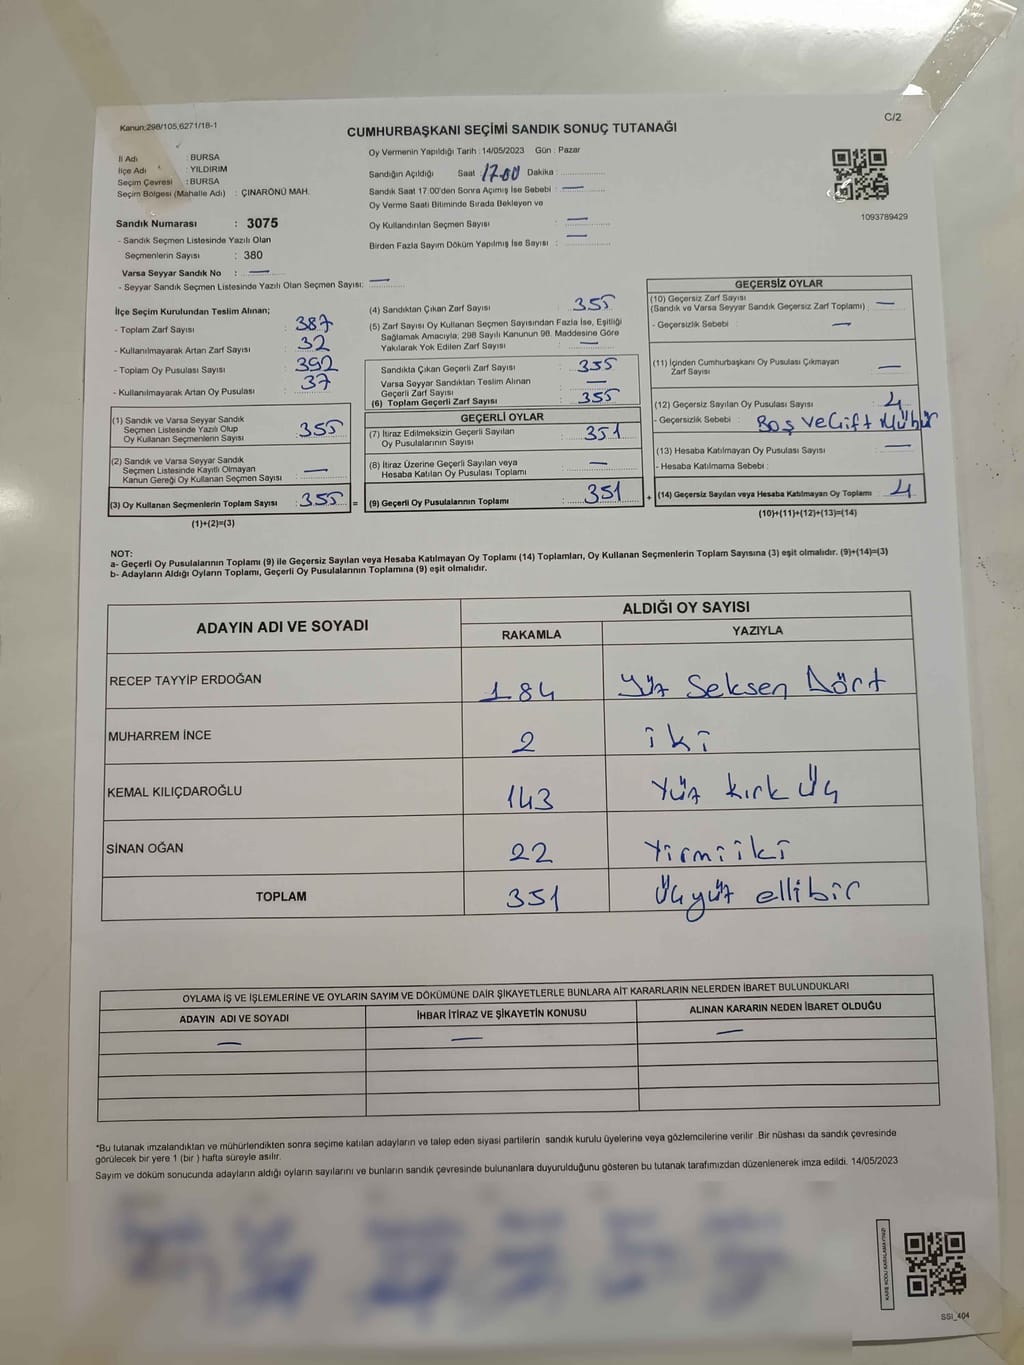 Kanun:298/105,6271/18-1
C/2
CUMHURBAŞKANI SEÇİMİ SANDIK SONUÇ TUTANAĞI
İl Adı : BURSA
İlçe Adı : YILDIRIM
Seçim Çevresi : BURSA
Seçim Bölgesi (Mahalle Adı) : ÇINARÖNÜ MAH.
Sandık Numarası : 3075
- Sandık Seçmen Listesinde Yazılı Olan
Seçmenlerin Sayısı : 380
Varsa Seyyar Sandık No : —
- Seyyar Sandık Seçmen Listesinde Yazılı Olan Seçmen Sayısı: —
Oy Vermenin Yapıldığı Tarih : 14/05/2023 Gün : Pazar
Sandığın Açıldığı Saat : 17.00 Dakika :
Sandık Saat 17:00'den Sonra Açımış İse Sebebi : —
Oy Verme Saati Bitiminde Sırada Bekleyen ve
Oy Kullandırılan Seçmen Sayısı : —
Birden Fazla Sayım Döküm Yapılmış İse Sayısı : —
1093789429
İlçe Seçim Kurulundan Teslim Alınan;
- Toplam Zarf Sayısı : 387
- Kullanılmayarak Artan Zarf Sayısı : 32
- Toplam Oy Pusulası Sayısı : 392
- Kullanılmayarak Artan Oy Pusulası : 37
(1) Sandık ve Varsa Seyyar Sandık
Seçmen Listesinde Yazılı Olup
Oy Kullanan Seçmenlerin Sayısı : 355
(2) Sandık ve Varsa Seyyar Sandık
Seçmen Listesinde Kayıtlı Olmayan
Kanun Gereği Oy Kullanan Seçmen Sayısı : —
(3) Oy Kullanan Seçmenlerin Toplam Sayısı : 355 =
(1)+(2)=(3)
(4) Sandıktan Çıkan Zarf Sayısı : 355
(5) Zarf Sayısı Oy Kullanan Seçmen Sayısından Fazla İse, Eşitliği
Sağlamak Amacıyla; 298 Sayılı Kanunun 98. Maddesine Göre
Yakılarak Yok Edilen Zarf Sayısı : —
Sandıkta Çıkan Geçerli Zarf Sayısı : 355
Varsa Seyyar Sandıktan Teslim Alınan
Geçerli Zarf Sayısı : —
(6) Toplam Geçerli Zarf Sayısı : 355
GEÇERLİ OYLAR
(7) İtiraz Edilmeksizin Geçerli Sayılan
Oy Pusulalarının Sayısı : 351
(8) İtiraz Üzerine Geçerli Sayılan veya
Hesaba Katılan Oy Pusulası Toplamı : —
(9) Geçerli Oy Pusulalarının Toplamı : 351 +
GEÇERSİZ OYLAR
(10) Geçersiz Zarf Sayısı
(Sandık ve Varsa Seyyar Sandık Geçersiz Zarf Toplamı) : —
- Geçersizlik Sebebi : —
(11) İçinden Cumhurbaşkanı Oy Pusulası Çıkmayan
Zarf Sayısı : —
(12) Geçersiz Sayılan Oy Pusulası Sayısı : 4
- Geçersizlik Sebebi : Boş ve Çift Mühür
(13) Hesaba Katılmayan Oy Pusulası Sayısı : —
- Hesaba Katılmama Sebebi :
(14) Geçersiz Sayılan veya Hesaba Katılmayan Oy Toplamı : 4
(10)+(11)+(12)+(13)=(14)
NOT:
a- Geçerli Oy Pusulalarının Toplamı (9) ile Geçersiz Sayılan veya Hesaba Katılmayan Oy Toplamı (14) Toplamları, Oy Kullanan Seçmenlerin Toplam Sayısına (3) eşit olmalıdır. (9)+(14)=(3)
b- Adayların Aldığı Oyların Toplamı, Geçerli Oy Pusulalarının Toplamına (9) eşit olmalıdır.
ADAYIN ADI VE SOYADI
ALDIĞI OY SAYISI
RAKAMLA YAZIYLA
RECEP TAYYİP ERDOĞAN 184 Yüz Seksen Dört
MUHARREM İNCE 2 iki
KEMAL KILIÇDAROĞLU 143 Yüz kırk Üç
SİNAN OĞAN 22 Yirmiiki
TOPLAM 351 Üçyüz ellibir
OYLAMA İŞ VE İŞLEMLERİNE VE OYLARIN SAYIM VE DÖKÜMÜNE DAİR ŞİKAYETLERLE BUNLARA AİT KARARLARIN NELERDEN İBARET BULUNDUKLARI
ADAYIN ADI VE SOYADI İHBAR İTİRAZ VE ŞİKAYETİN KONUSU ALINAN KARARIN NEDEN İBARET OLDUĞU
— — —
*Bu tutanak imzalandıktan ve mühürlendikten sonra seçime katılan adayların ve talep eden siyasi partilerin sandık kurulu üyelerine veya gözlemcilerine verilir Bir nüshası da sandık çevresinde
görülecek bir yere 1 (bir ) hafta süreyle asılır.
Sayım ve döküm sonucunda adayların aldığı oyların sayılarını ve bunların sandık çevresinde bulunanlara duyurulduğunu gösteren bu tutanak tarafımızdan düzenlenerek imza edildi. 14/05/2023
KARE KODU KARALAMAYINIZ!
SSI_404